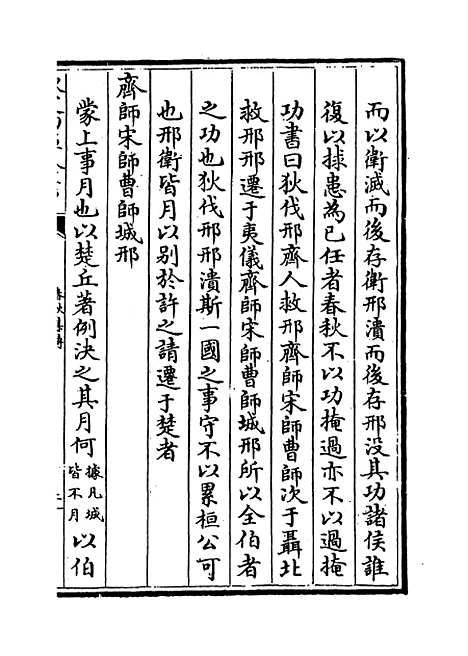 而以衛滅而後存衛邢潰而後存邢没其功諸侯誰
復以捄患為已任者春秋不以功掩過亦不以過掩
功書曰狄伐邢齊人救邢齊師宋師曹師次于聶北
救邢邢遷于夷儀齊師宋師曹師城邢所以全伯者
之功也狄伐邢邢潰斯一國之事守不以累桓公可
也邢衛皆月以别於許之請遷于楚者
齊師宋師曹師城邢
蒙上事月也以楚丘著例決之其月何據凡城皆不月以伯